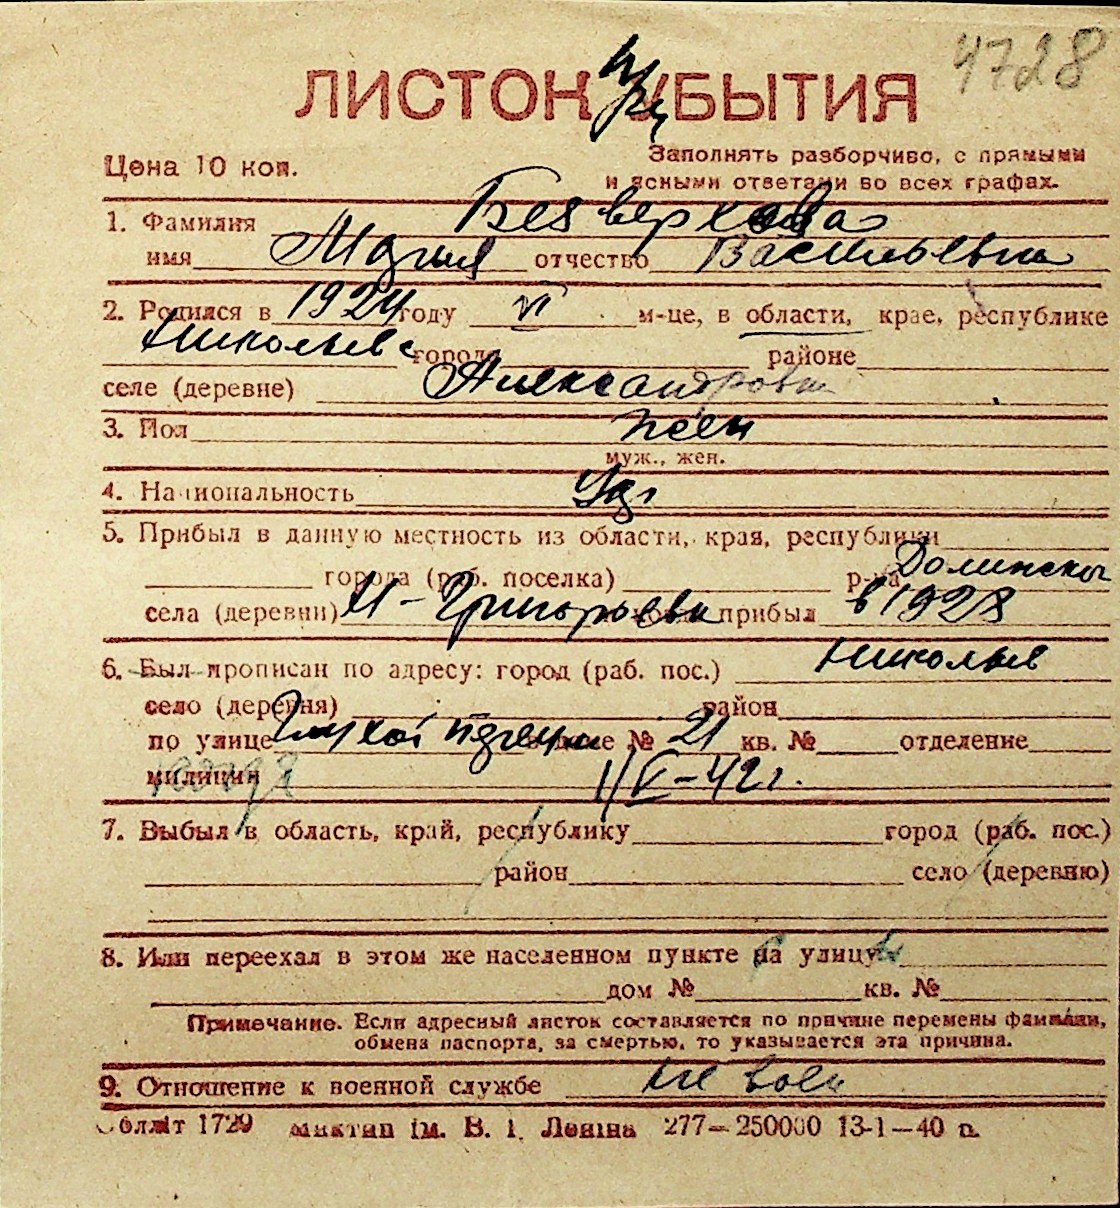 4728
ЛИСТОК УБЫТИЯ
Цена 10 коп.
Заполнять разборчиво, с прямыми
и ясными ответами во всех графах.
1. Фамилия Безверхова
имя Мария отчество Васильевна
2. Родился в 1924 году VI м-це, в области, крае, республике
Николаевс городе районе
селе (деревне) Александровка
3. Пол жен
муж., жен.
4. Национальность
5. Прибыл в данную местность из области, края, республики
города (раб. поселка) р-на Долинског
села (деревни) Н-Григорьевки когда прибыл в 1928
6. Был прописан по адресу: город (раб. пос.) Николаев
село (деревня) район
по улице дом № 21 кв. № отделение
милиции 1/V-42 г.
7. Выбыл в область, край, республику город (раб. пос.)
район село (деревню)
8. Или переехал в этом же населенном пункте на улицу
дом № кв. №
Примечание. Если адресный листок составляется по причине перемены фамилии,
обмена паспорта, за смертью, то указывается эта причина.
9. Отношение к военной службе не воен
Облліт 1729 Миктип ім. В. І. Леніна 277—250000 13-1—40 п.